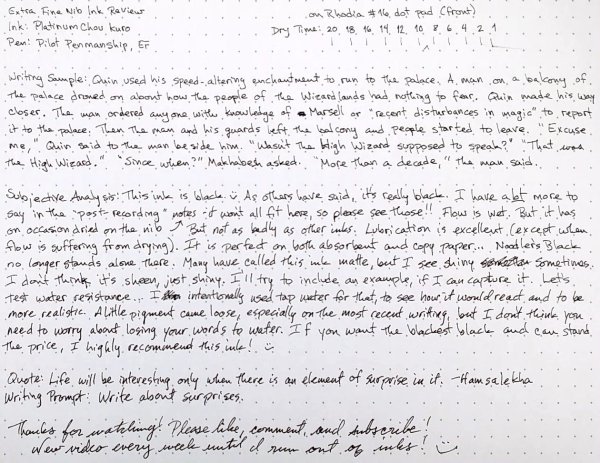 Extra Fine Nib Ink Review
on Rhodia #16, dot pad (front)
Ink: Platinum Chou Kuro
Dry Time: 20 18 16 14 12 10 8 6 4 2 1
Pen: Pilot Penmanship, EF
Writing Sample: Quin used his speed-altering enchantment to run to the palace. A man on a balcony of
the palace droned on about how the people of the Wizardlands had nothing to fear. Quin made his way
closer. The man ordered anyone with knowledge of Marsell or "recent disturbances in magic" to report
it to the palace. Then the man and his guards left the balcony and people started to leave. "Excuse
me," Quin said to the man beside him. "Wasn't the High Wizard supposed to speak?" "That was
the High Wizard." "Since when?" Makhabesh asked. "More than a decade," the man said.
Subjective Analysis: This ink is black. As others have said, it's really black. I have a lot more to
say in the "post-recording" notes - it won't all fit here, so please see those!! Flow is wet. But it has
on occasion dried on the nib But not as badly as other inks. Lubrication is excellent (except when
flow is suffering from drying). It is perfect on both absorbent and copy paper... Noodler's Black
no longer stands alone there. Many have called this ink matte, but I see shiny sometimes.
I don't think it's sheen, just shiny. I'll try to include an example, if I can capture it. Let's
test water resistance... I intentionally used tap water for that, to see how it would react and to be
more realistic. A little pigment came loose, especially on the most recent writing, but I don't think you
need to worry about losing your words to water. If you want the blackest black and can stand
the price, I highly recommend this ink!
Quote: Life will be interesting only when there is an element of surprise in it. -Hamsalekha
Writing Prompt: Write about surprises.
Thanks for watching! Please like, comment, and subscribe!
New video every week until I run out of inks!